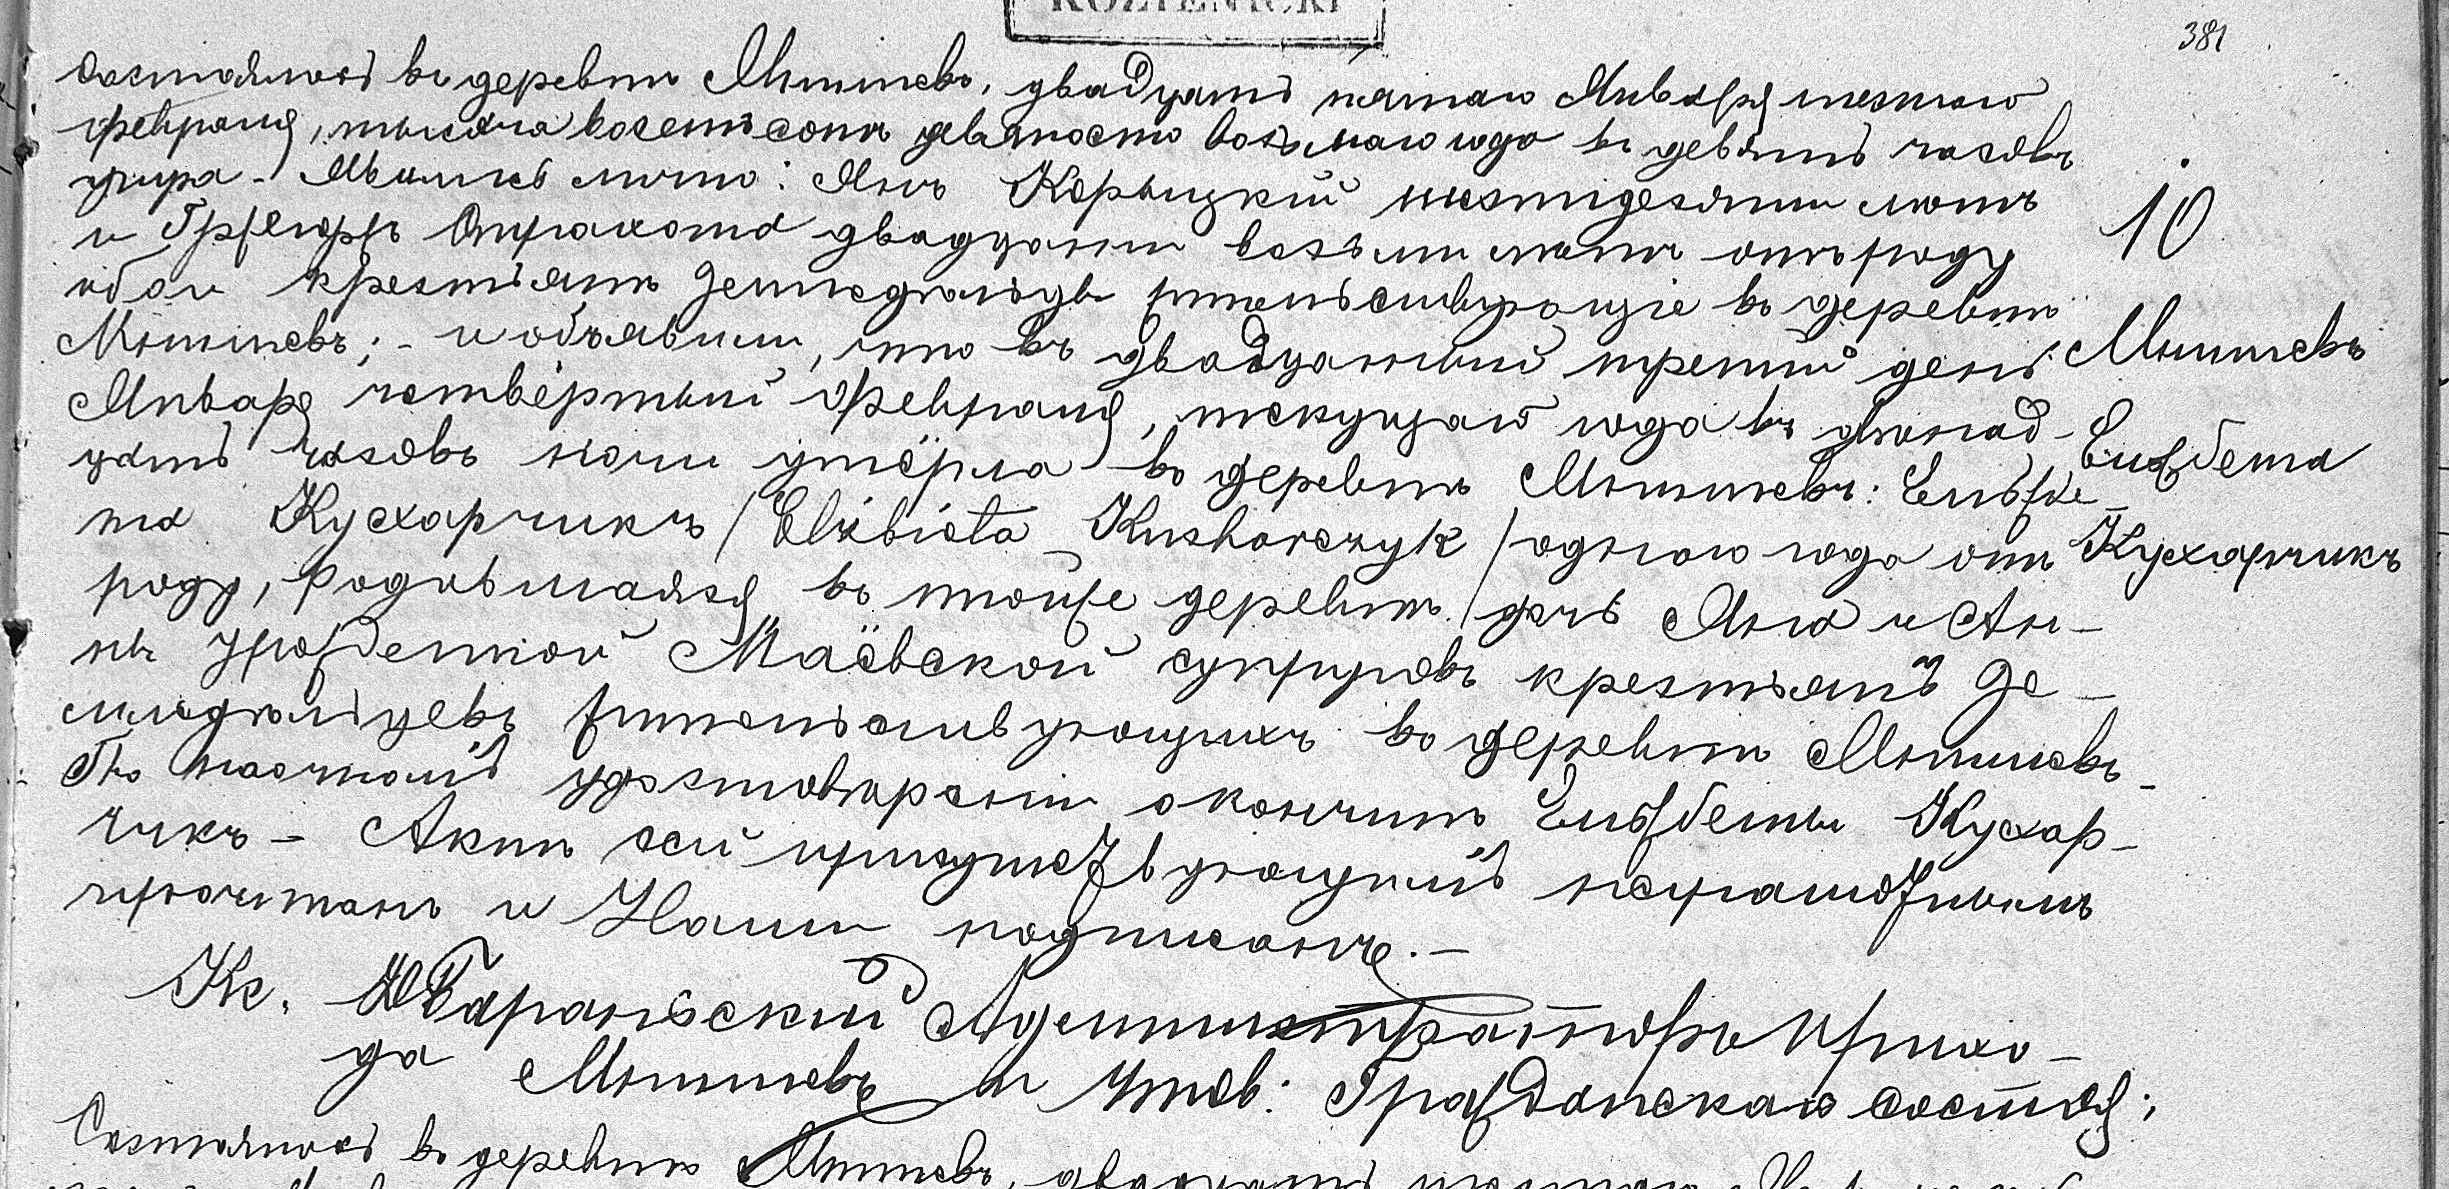 KOZIENICKI
381
Состоялось въ деревни Мнишевъ, двадцать пятаго Января шестаго
Февраля, тысяча восемьсотъ девяносто восьмаго года въ девять часовъ
утра - Явились лично: Янъ Корыцкій шестидесяти летъ
и Гржегоржъ Страхота двадцати восьми летъ отъ роду
обои крестьяне земледельцы жительствующіе въ деревни
Мнишевъ; - и объявили, что въ двадцатый третій день
Января четвёртый Февраля, текущаго года въ двенад-
цать часовъ ночи умёрла въ деревни Мнишевъ: Ельжбе-
та Кухарчикъ /Elżbieta Kucharczyk/ одного года отъ
роду, родившаяся въ тойже деревни, дочь Яна и Ан-
ны урожденной Маёвской супруговъ крестьянъ зе-
мледельцевъ жительствующихъ въ деревни Мнишевъ -
По настоящей удостоверении о кончине Ельжбеты Кухар-
чикъ - Актъ сей присутствующимъ неграмотнымъ
прочитанъ и Нами подписанъ. -
Кс. Барансский Администраторъ Прихо-
да Мнишевъ и Чинов: Гражданскаго состоя:
10
Мнишевъ
Елжбета
Кухарчикъ
Состоялось въ деревни Мнишевъ, двадцать